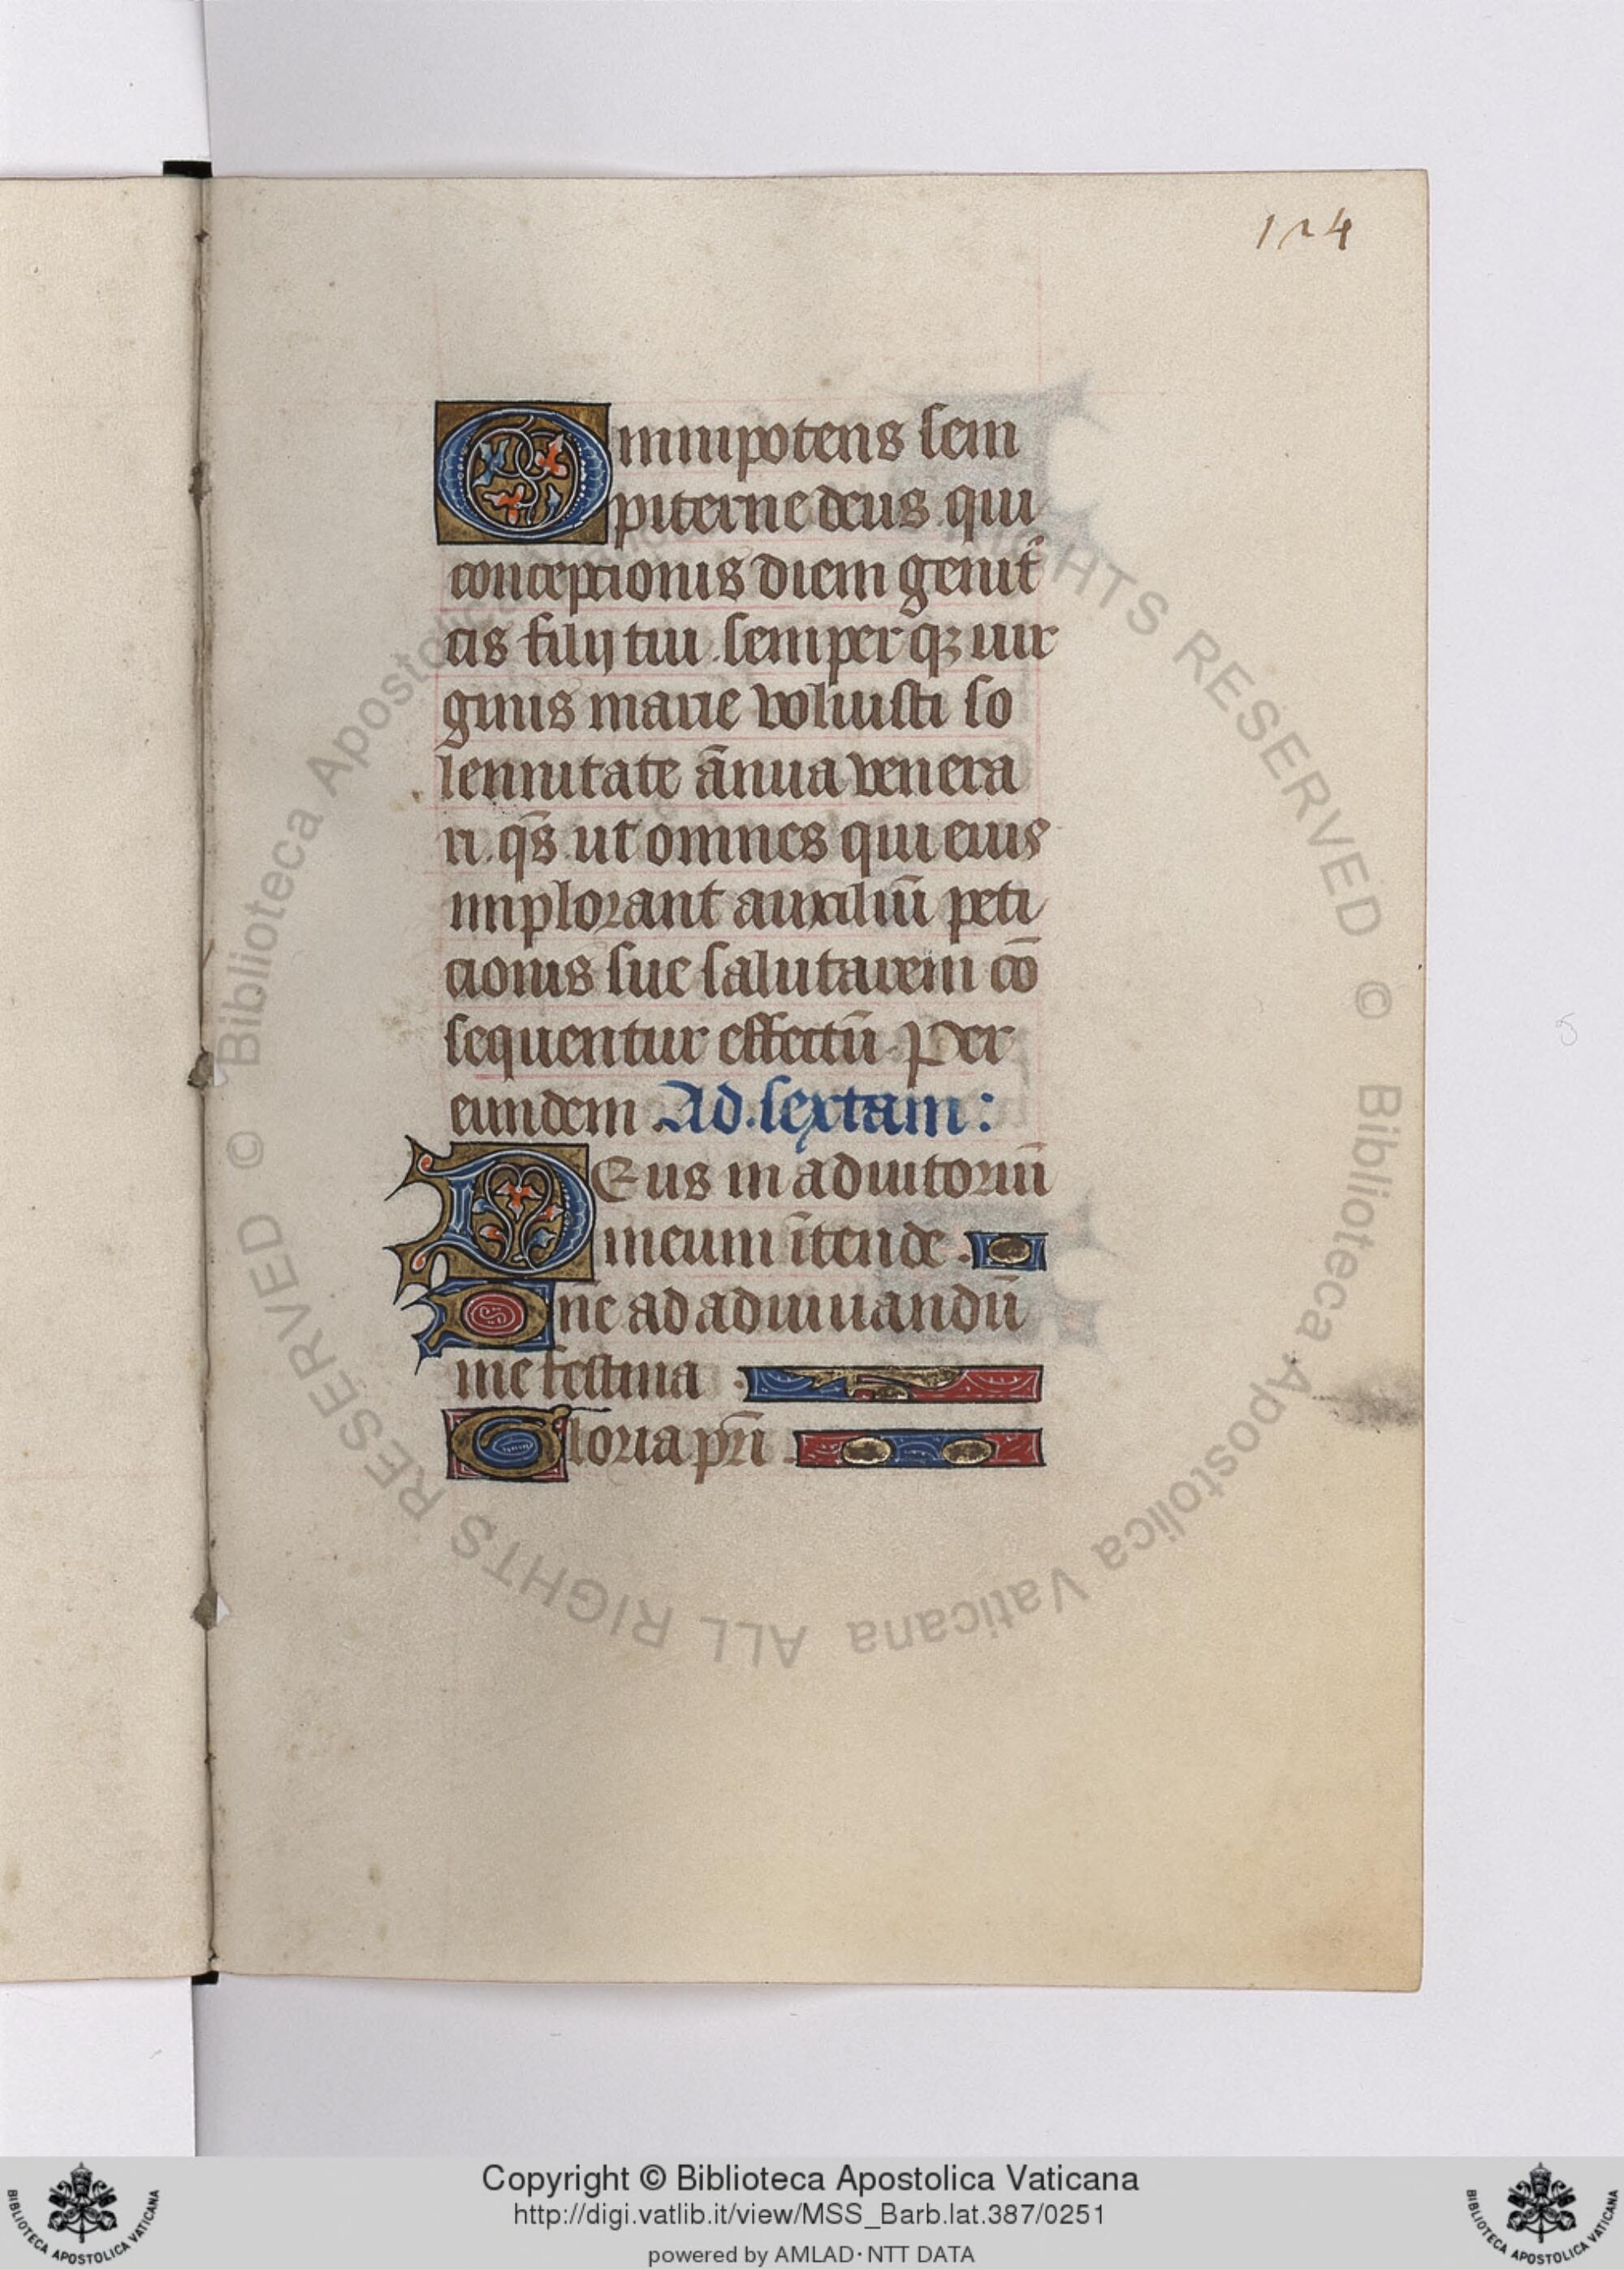 124
Omnipotens sem
piterne deus qui
conceptionis diem genit͛
cis filij tui .semper qꝫ uir
ginis marie voluisti so
lennitate ān̄ua venera
ri. qs̄. ut omnes qui eius
implorant auxiliū peti
cionis sue salutarem cō
sequentur effectū. Per
eundem .Ad.sextam:
DEus in adiutoriū
meum ītende .
Dne ad adiuuandū
me festina .
Gloria pr̄i .
© Biblioteca Apostolica Vaticana ALL RIGHTS RESERVED © Biblioteca Apostolica Vaticana ALL RIGHTS RESERVED
Copyright © Biblioteca Apostolica Vaticana
http://digi.vatlib.it/view/MSS_Barb.lat.387/0251
powered by AMLAD·NTT DATA
BIBLIOTECA APOSTOLICA VATICANA
BIBLIOTECA APOSTOLICA VATICANA